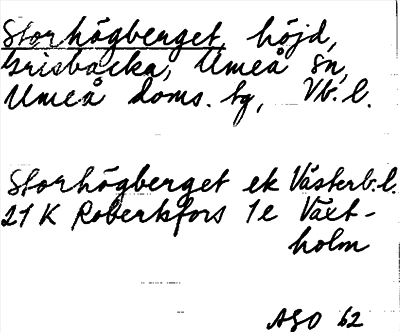 Storhögberget, höjd,
Grisbacka, Umeå sn,
Umeå doms. tg, Vb. l.
Storhögberget ek Västerb. l.
21 K Robertsfors 1e Växt-
holm
ASO 62